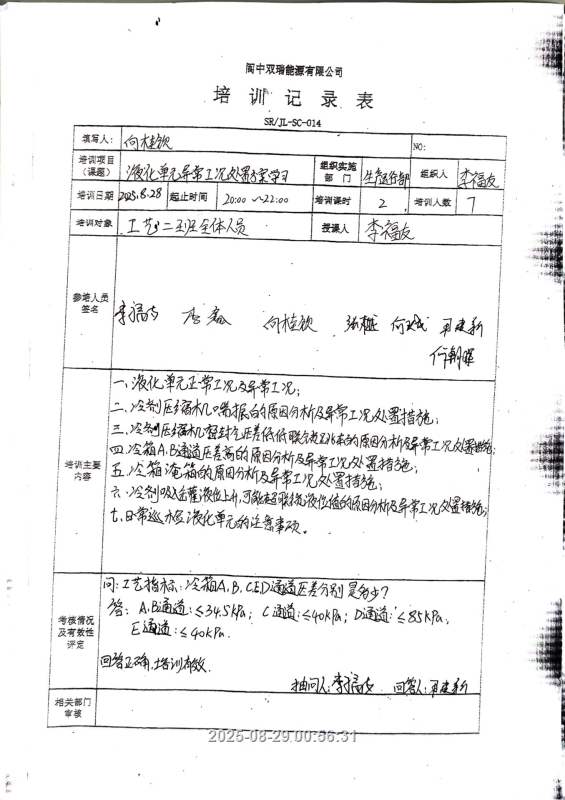 阆中双瑞能源有限公司
培训记录表
SR/JL-SC-014
填写人: 向桂钦 NO:
培训项目(课题) 液化单元异常工况处置方案学习 组织实施部门 生产运行部 组织人 李福友
培训日期 2025.8.28 起止时间 20:00~22:00 培训课时 2 培训人数 7
培训对象 工艺二班全体人员 授课人 李福友
参培人员签名
李福友 向桂钦
何朝晖
培训主要内容
一、液化单元正常工况及异常工况;
二、冷剂压缩机喘振的原因分析及异常工况处置措施;
三、冷剂压缩机密封气压差低低联锁的原因分析及异常工况处置措施;
四、冷箱A.B通道压差高的原因分析及异常工况处置措施;
五、冷箱淹箱的原因分析及异常工况处置措施;
六、冷剂吸入罐液位上升,可能超联锁液位值的原因分析及异常工况处置措施;
七、日常巡检液化单元的注意事项。
考核情况及有效性评定
问:工艺指标:冷箱A,B,C,E,D通道压差分别是多少?
答:A,B通道:≤34.5kPa; C通道:≤40kPa; D通道:≤85kPa,
E通道:≤40kPa.
回答正确,培训有效.
抽问人:李福友 回答人:
相关部门审核
2025-08-29 00:56:31